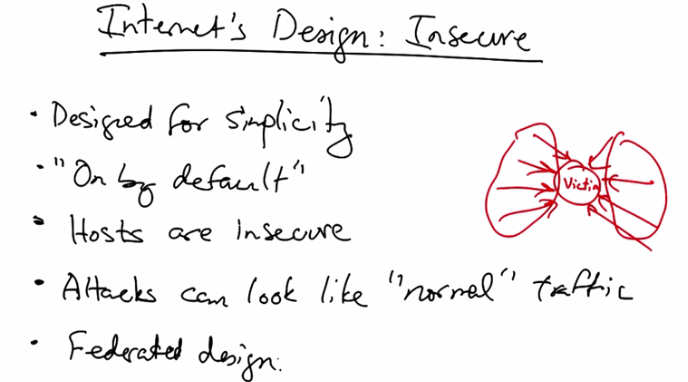 Internet's Design: Insecure
• Designed for simplicity
• "On by default"
Victim
• Hosts are insecure
• Attacks can look like "normal" traffic
• Federated design.